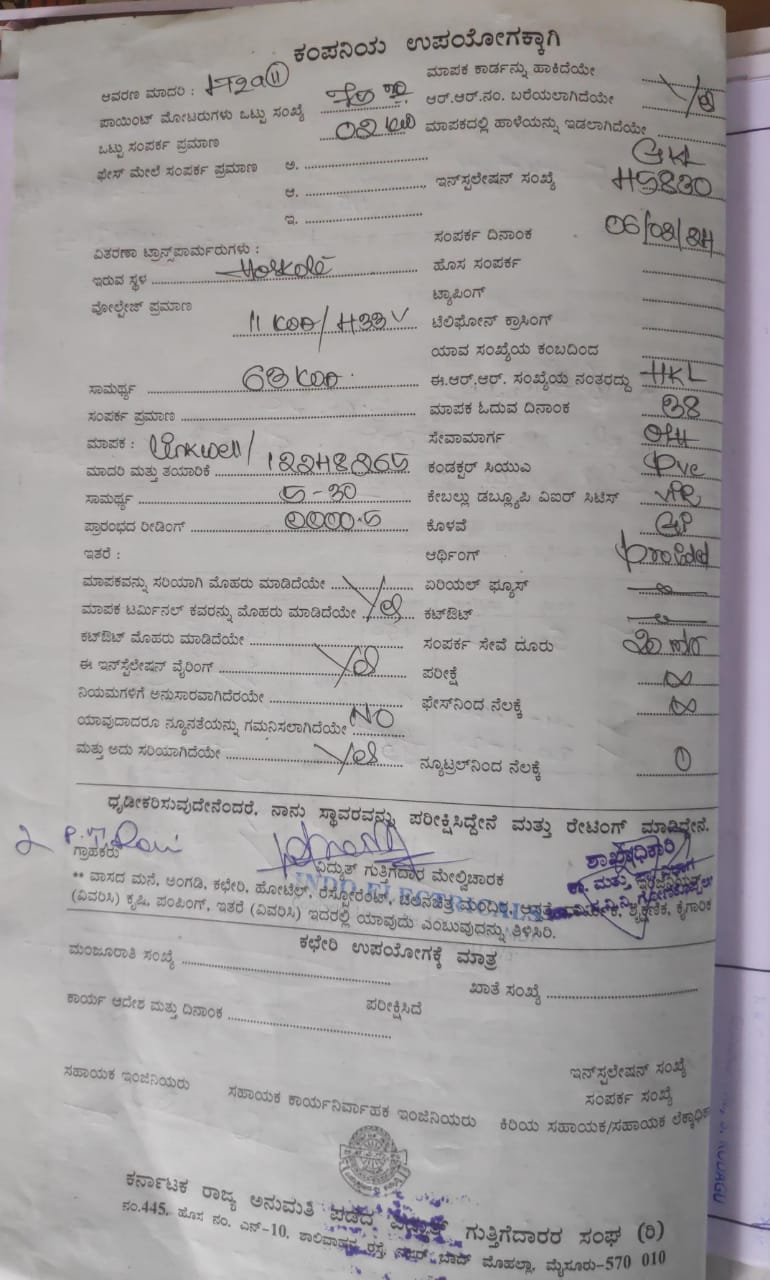 ಕಂಪನಿಯ ಉಪಯೋಗಕ್ಕಾಗಿ
ಆವರಣ ಮಾದರಿ :
ಮಾಪಕ ಕಾರ್ಡನ್ನು ಹಾಕಿದೆಯೇ
ಪಾಯಿಂಟ್ ಮೋಟರುಗಳು ಒಟ್ಟು ಸಂಖ್ಯೆ
ಆರ್.ಆರ್.ನಂ. ಬರೆಯಲಾಗಿದೆಯೇ
ಒಟ್ಟು ಸಂಪರ್ಕ ಪ್ರಮಾಣ
ಮಾಪಕದಲ್ಲಿ ಹಾಳೆಯನ್ನು ಇಡಲಾಗಿದೆಯೇ
ಫೇಸ್ ಮೇಲೆ ಸಂಪರ್ಕ ಪ್ರಮಾಣ ಅ.
GKL
ಆ. ಇನ್‌ಸ್ಟಲೇಷನ್ ಸಂಖ್ಯೆ H5830
ಇ.
ವಿತರಣಾ ಟ್ರಾನ್ಸ್‌ಪಾರ್ಮರುಗಳು :
ಸಂಪರ್ಕ ದಿನಾಂಕ 06/08/24
ಇರುವ ಸ್ಥಳ Hoskote
ಹೊಸ ಸಂಪರ್ಕ
ವೋಲ್ಟೇಜ್ ಪ್ರಮಾಣ
ಟ್ಯಾಪಿಂಗ್
ಟೆಲಿಫೋನ್ ಕ್ರಾಸಿಂಗ್
ಯಾವ ಸಂಖ್ಯೆಯ ಕಂಬದಿಂದ
ಸಾಮರ್ಥ್ಯ
ಈ.ಆರ್.ಆರ್. ಸಂಖ್ಯೆಯ ನಂತರದ್ದು HKL
ಸಂಪರ್ಕ ಪ್ರಮಾಣ
ಮಾಪಕ ಓದುವ ದಿನಾಂಕ 38
ಮಾಪಕ : Linkwell/
ಸೇವಾಮಾರ್ಗ OH
ಮಾದರಿ ಮತ್ತು ತಯಾರಿಕೆ
ಕಂಡಕ್ಟರ್ ಸಿಯುಎ PVC
ಸಾಮರ್ಥ್ಯ 5-30
ಕೇಬಲ್ಲು ಡಬ್ಲ್ಯೂಪಿ ವಿಐರ್ ಸಿಟಿಸ್
ಪ್ರಾರಂಭದ ರೀಡಿಂಗ್ 0000.5
ಕೊಳವೆ GP
ಇತರೆ :
ಆರ್ಥಿಂಗ್
ಮಾಪಕವನ್ನು ಸರಿಯಾಗಿ ಮೊಹರು ಮಾಡಿದೆಯೇ
ಏರಿಯಲ್ ಫ್ಯೂಸ್
ಮಾಪಕ ಟರ್ಮಿನಲ್ ಕವರನ್ನು ಮೊಹರು ಮಾಡಿದೆಯೇ Yes
ಕಟ್‌ಔಟ್
ಕಟ್‌ಔಟ್ ಮೊಹರು ಮಾಡಿದೆಯೇ
ಸಂಪರ್ಕ ಸೇವೆ ದೂರು
ಈ ಇನ್‌ಸ್ಟೆಲೇಷನ್ ವೈರಿಂಗ್ Yes
ಪರೀಕ್ಷೆ ∞
ನಿಯಮಗಳಿಗೆ ಅನುಸಾರವಾಗಿದೆರಯೇ
ಫೇಸ್‌ನಿಂದ ನೆಲಕ್ಕೆ ∞
ಯಾವುದಾದರೂ ನ್ಯೂನತೆಯನ್ನು ಗಮನಿಸಲಾಗಿದೆಯೇ NO
ಮತ್ತು ಅದು ಸರಿಯಾಗಿದೆಯೇ Yes
ನ್ಯೂಟ್ರಲ್‌ನಿಂದ ನೆಲಕ್ಕೆ 0
ಧೃಡೀಕರಿಸುವುದೇನೆಂದರೆ, ನಾನು ಸ್ಥಾವರವನ್ನು ಪರೀಕ್ಷಿಸಿದ್ದೇನೆ ಮತ್ತು ರೇಟಿಂಗ್ ಮಾಡಿದ್ದೇನೆ.
ಗ್ರಾಹಕರು
ವಿದ್ಯುತ್ ಗುತ್ತಿಗೆದಾರ ಮೇಲ್ವಿಚಾರಕ
ಶಾಖಾಧಿಕಾರಿ
INDO ELECTRICALS
** ವಾಸದ ಮನೆ, ಅಂಗಡಿ, ಕಛೇರಿ, ಹೋಟೆಲ್, ರೆಸ್ಟೋರೆಂಟ್, ಚಲನಚಿತ್ರ ಮಂದಿರ, ಶೈಕ್ಷಣಿಕ, ಕೈಗಾರಿಕ
(ವಿವರಿಸಿ) ಕೃಷಿ, ಪಂಪಿಂಗ್, ಇತರೆ (ವಿವರಿಸಿ) ಇದರಲ್ಲಿ ಯಾವುದು ಎಂಬುವುದನ್ನು ತಿಳಿಸಿರಿ.
ಕಛೇರಿ ಉಪಯೋಗಕ್ಕೆ ಮಾತ್ರ
ಮಂಜೂರಾತಿ ಸಂಖ್ಯೆ
ಖಾತೆ ಸಂಖ್ಯೆ
ಕಾರ್ಯ ಆದೇಶ ಮತ್ತು ದಿನಾಂಕ
ಪರೀಕ್ಷಿಸಿದೆ
ಇನ್‌ಸ್ಟಲೇಷನ್ ಸಂಖ್ಯೆ
ಸಂಪರ್ಕ ಸಂಖ್ಯೆ
ಸಹಾಯಕ ಇಂಜಿನಿಯರು
ಸಹಾಯಕ ಕಾರ್ಯನಿರ್ವಾಹಕ ಇಂಜಿನಿಯರು
ಕಿರಿಯ ಸಹಾಯಕ/ಸಹಾಯಕ
ಕರ್ನಾಟಕ ರಾಜ್ಯ ಅನುಮತಿ ಪಡೆದ ವಿದ್ಯುತ್ ಗುತ್ತಿಗೆದಾರರ ಸಂಘ (ರಿ)
ನಂ.445, ಹೊಸ ನಂ. ಎನ್-10, ಶಾಲಿವಾಹನ ರಸ್ತೆ, ನಜರ್ ಬಾದ್ ಮೊಹಲ್ಲಾ, ಮೈಸೂರು-570 010